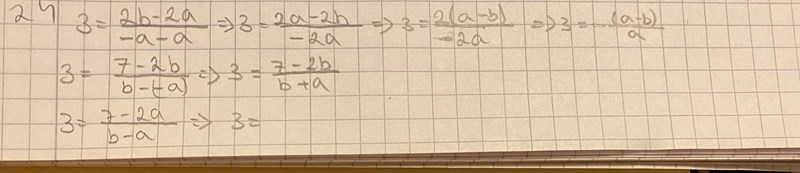 24 3 = \frac{2b-2a}{-a-a} ⇒ 3 = \frac{2a-2b}{-2a} ⇒ 3 = \frac{2(a-b)}{-2a} ⇒ 3 = -\frac{(a-b)}{a}
3 = \frac{7-2b}{b-(-a)} ⇒ 3 = \frac{7-2b}{b+a}
3 = \frac{7-2a}{b-a} ⇒ 3 =